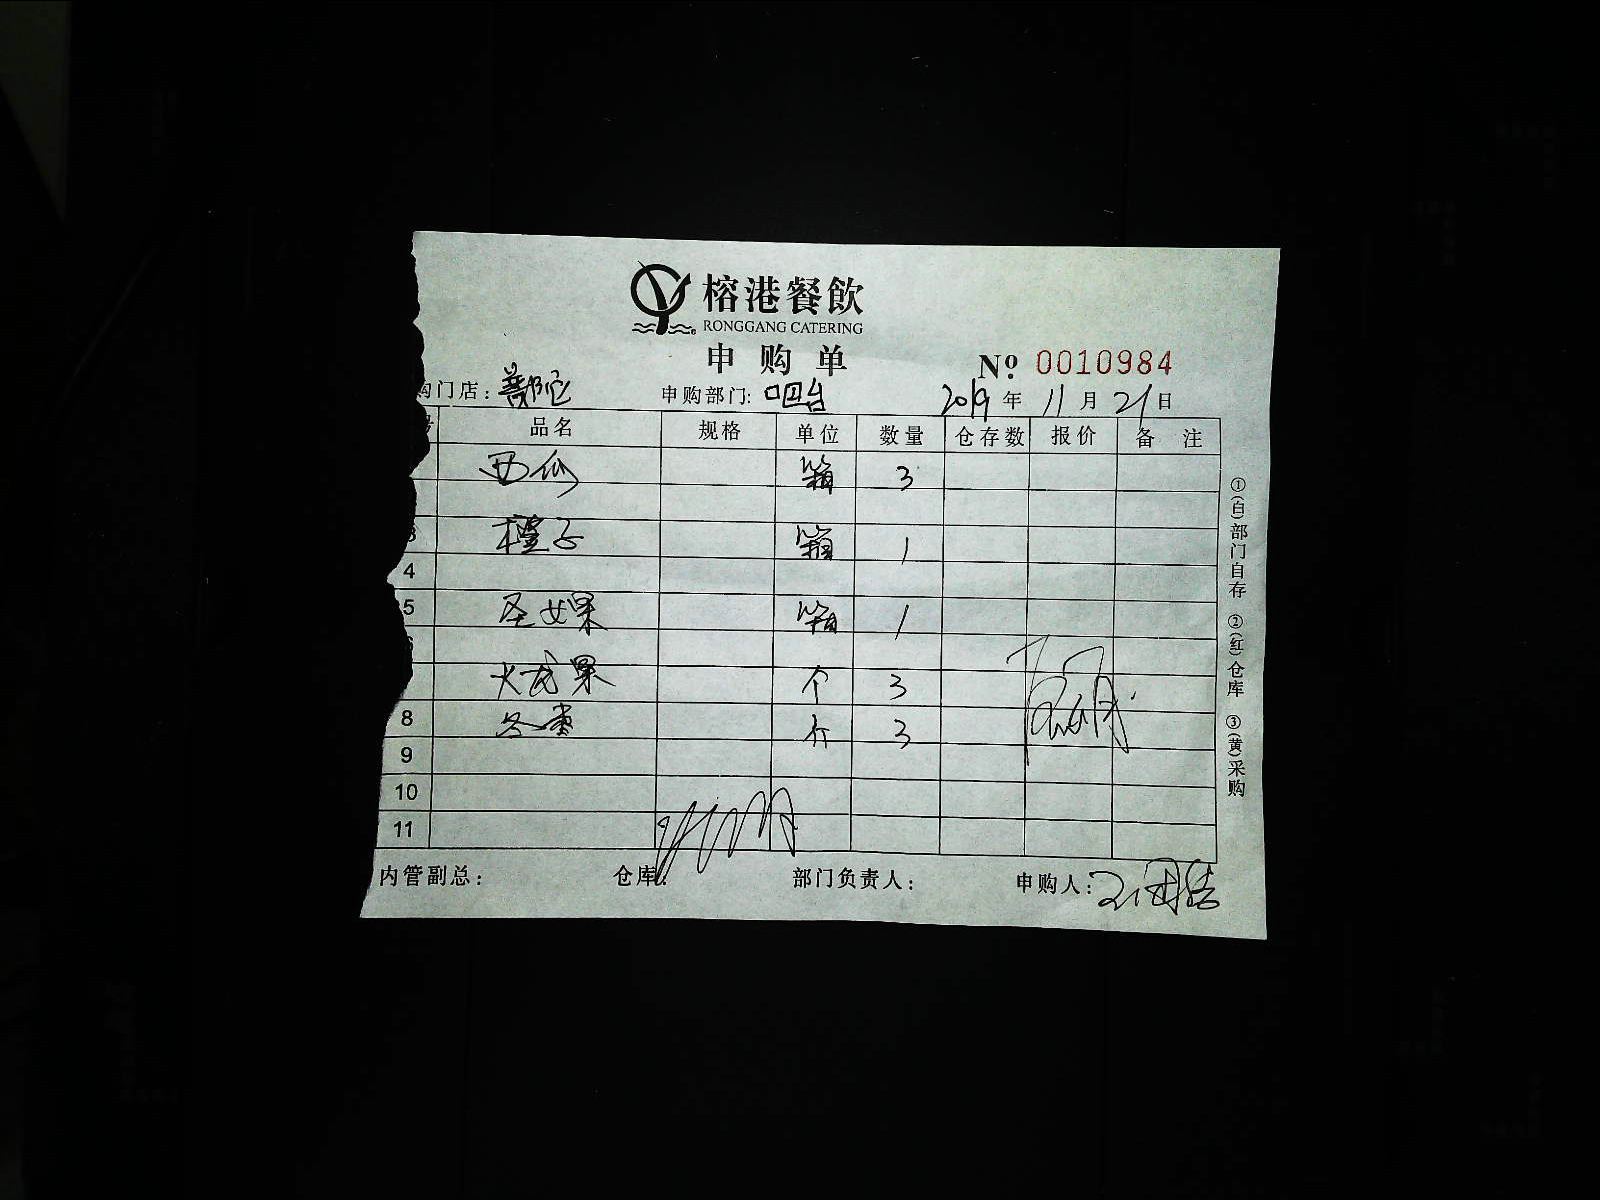 榕港餐飲
RONGGANG CATERING
申购单
№ 0010984
购门店：普陀 申购部门：吧台 2019年11月21日
号 品名 规格 单位 数量 仓存数 报价 备注
西瓜 箱 3
3 橙子 箱 1
4
5 圣女果 箱 1
6
火龙果 个 3
8 冬枣 斤 3
9
10
11
内管副总： 仓库： 部门负责人： 申购人：
①(白)部门自存 ②(红)仓库 ③(黄)采购